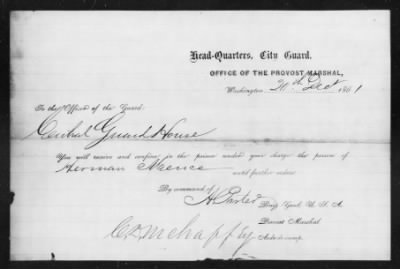 Head-Quarters, City Guard,
OFFICE OF THE PROVOST MARSHAL,
Washington, 20th Dect 1861
To the Officer of the Guard:
Central Guard House
You will receive and confine in the prison under your charge the person of
Herman until further orders
By command of A Porter
Brig. Genl. U. S. A.
Provost Marshal
Aide-de-camp.